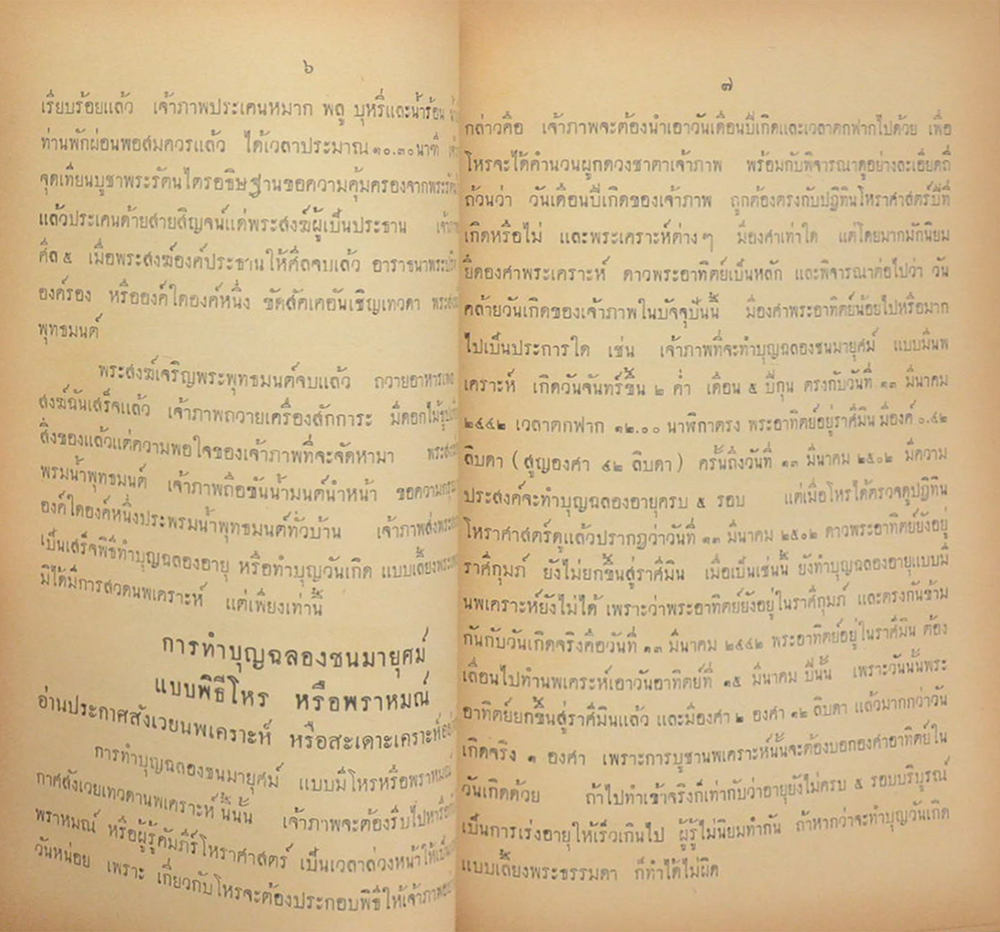 ๖
เรียบร้อยแล้ว เจ้าภาพประเคนหมาก พลู บุหรี่และน้ำร้อน
ท่านพักผ่อนพอสมควรแล้ว ได้เวลาประมาณ ๑๐.๓๐ นาฬิ
จุดเทียนบูชาพระรัตนไตรอธิษฐานขอความคุ้มครองจากพระรัต
แล้วประเคนด้ายสายสิญจน์แด่พระสงฆ์ผู้เป็นประธาน
ศีล ๕ เมื่อพระสงฆ์องค์ประธานให้ศีลจบแล้ว อาราธนาพระปริ
องค์รอง หรือองค์ใดองค์หนึ่ง ขัดสัคเคอันเชิญเทวดา พระสงฆ
พุทธมนต์
พระสงฆ์เจริญพระพุทธมนต์จบแล้ว ถวายอาหารเพล
สงฆ์ฉันเสร็จแล้ว เจ้าภาพถวายเครื่องสักการะ มีดอกไม้ธูปเ
สิ่งของแล้วแต่ความพอใจของเจ้าภาพที่จะจัดหามา พระสงฆ
พรมน้ำพุทธมนต์ เจ้าภาพถือขันน้ำมนต์นำหน้า ขอความกรุณ
องค์ใดองค์หนึ่งประพรมน้ำพุทธมนต์ทั่วบ้าน เจ้าภาพส่งพระก
เป็นเสร็จพิธีทำบุญฉลองอายุ หรือทำบุญวันเกิด แบบเลี้ยงพระเพ
มิได้มีการสวดนพเคราะห์ แต่เพียงเท่านี้
การทำบุญฉลองชนมายุศม์
แบบพิธีโหร หรือพราหมณ์
อ่านประกาศสังเวยนพเคราะห์ หรือสะเดาะเคราะห์
การทำบุญฉลองชนมายุศม์ แบบมีโหรหรือพราหมณ์
กาศสังเวยเทวดานพเคราะห์นั้นนั้น เจ้าภาพจะต้องรีบไปหารือก
พราหมณ์ หรือผู้รู้คัมภีร์โหราศาสตร์ เป็นเวลาล่วงหน้าให้เป็นเ
วันหน่อย เพราะ เกี่ยวกับโหรจะต้องประกอบพิธีให้เจ้าภาพ
๗
กล่าวคือ เจ้าภาพจะต้องนำเอาวันเดือนปีเกิดและเวลาตกฟากไปด้วย เพื่อ
โหรจะได้คำนวนผูกดวงชาตาเจ้าภาพ พร้อมกับพิจารณาดูอย่างละเอียดถี่
ถ้วนว่า วันเดือนปีเกิดของเจ้าภาพ ถูกต้องตรงกับปฏิทินโหราศาสตร์ปีที่
เกิดหรือไม่ และพระเคราะห์ต่างๆ มีองศาเท่าใด แต่โดยมากมักนิยม
ยึดองศาพระเคราะห์ ดาวพระอาทิตย์เป็นหลัก และพิจารณาต่อไปว่า วัน
คล้ายวันเกิดของเจ้าภาพในปัจจุบันนี้ มีองศาพระอาทิตย์น้อยไปหรือมาก
ไปเป็นประการใด เช่น เจ้าภาพที่จะทำบุญฉลองชนมายุศม์ แบบมีนพ
เคราะห์ เกิดวันจันทร์ขึ้น ๒ ค่ำ เดือน ๕ ปีกุน ตรงกับวันที่ ๑๓ มีนาคม
๒๔๔๒ เวลาตกฟาก ๑๒.๐๐ นาฬิกาตรง พระอาทิตย์อยู่ราศีมีน มีองศ์ ๐.๕๒
ลิบดา (สูญองศา ๕๒ ลิบดา) ครั้นถึงวันที่ ๑๓ มีนาคม ๒๕๐๒ มีความ
ประสงค์จะทำบุญฉลองอายุครบ ๕ รอบ แต่เมื่อโหรได้ตรวจดูปฏิทิน
โหราศาสตร์ดูแล้วปรากฏว่าวันที่ ๑๓ มีนาคม ๒๕๐๒ ดาวพระอาทิตย์ยังอยู่
ราศีกุมภ์ ยังไม่ยกขึ้นสู่ราศีมีน เมื่อเป็นเช่นนี้ ยังทำบุญฉลองอายุแบบมี
นพเคราะห์ยังไม่ได้ เพราะว่าพระอาทิตย์ยังอยู่ในราศีกุมภ์ และตรงกันข้าม
กันกับวันเกิดจริงคือวันที่ ๑๓ มีนาคม ๒๔๔๒ พระอาทิตย์อยู่ในราศีมีน ต้อง
เลื่อนไปทำนพเคราะห์เอาวันอาทิตย์ที่ ๑๕ มีนาคม ปีนั้น เพราะวันนั้นพระ
อาทิตย์ยกขึ้นสู่ราศีมีนแล้ว และมีองศา ๒ องศา ๑๒ ลิบดา แล้วมากกว่าวัน
เกิดจริง ๑ องศา เพราะการบูชานพเคราะห์นั้นจะต้องบอกองศาอาทิตย์ใน
วันเกิดด้วย ถ้าไปทำเข้าจริงก็เท่ากับว่าอายุยังไม่ครบ ๕ รอบบริบูรณ์
เป็นการเร่งอายุให้เร็วเกินไป ผู้รู้ไม่นิยมทำกัน ถ้าหากว่าจะทำบุญวันเกิด
แบบเลี้ยงพระธรรมดา ก็ทำได้ไม่ผิด